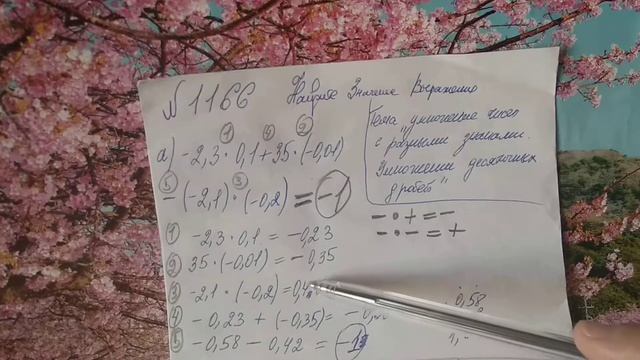 № 1166 Найдите Значение Выражения
Тема "умножение чисел
с разными знаками.
Умножение десятичных
дробей"
① ④ ②
а) -2,3 · 0,1 + 35 · (-0,01)
⑤ ③
- (-2,1) · (-0,2) = -1
- · + = -
- · - = +
① -2,3 · 0,1 = -0,23
② 35 · (-0,01) = -0,35
③ -2,1 · (-0,2) = 0,4
④ -0,23 + (-0,35) = -0,
0,58
⑤ -0,58 - 0,42 = -1